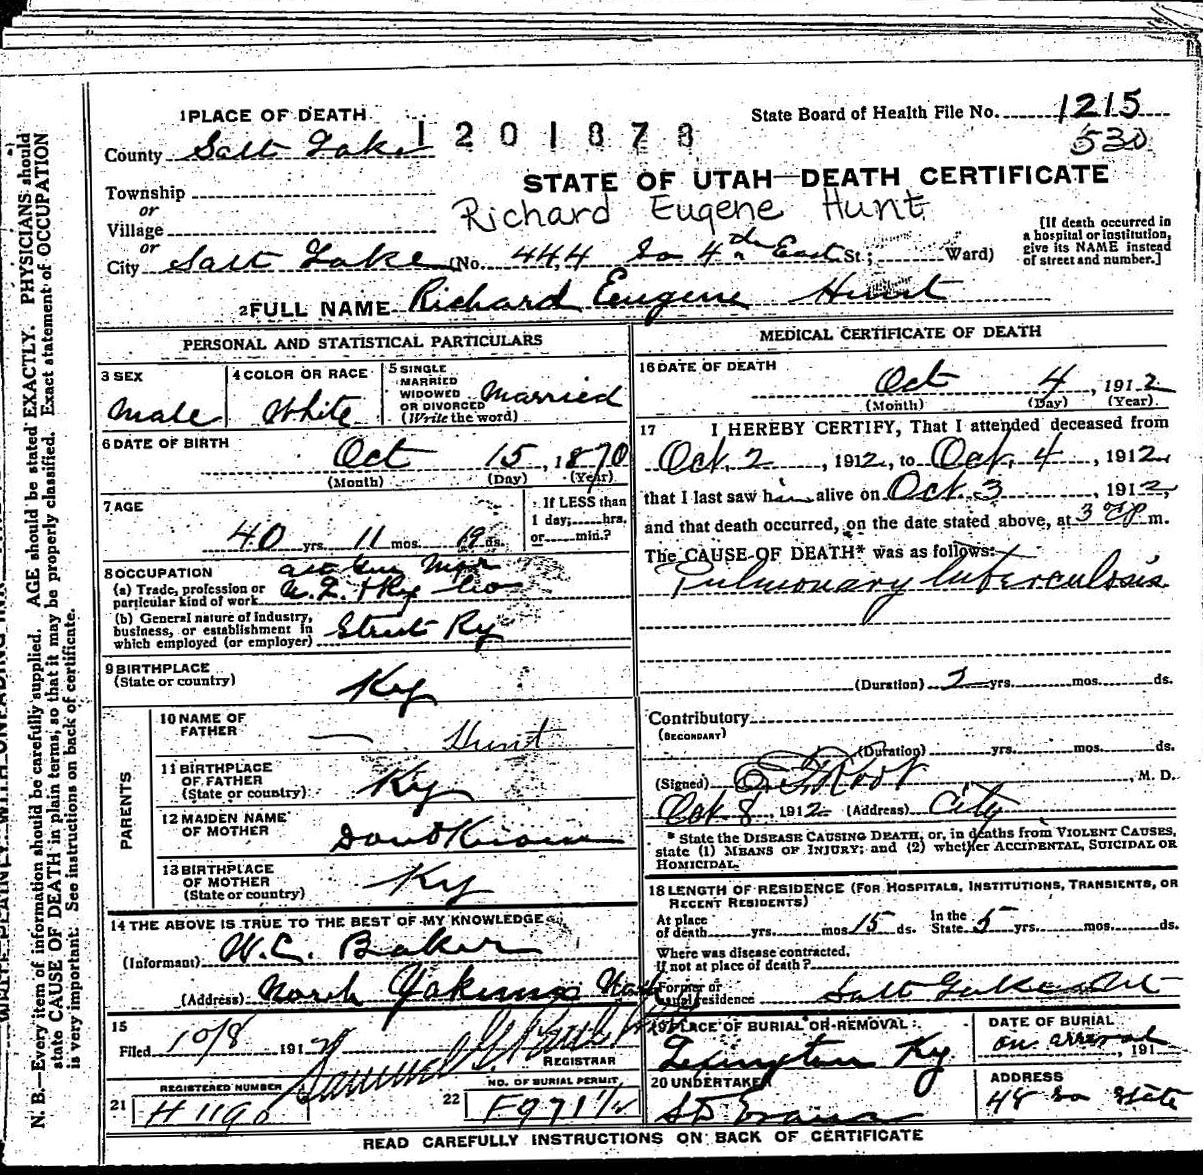 1 PLACE OF DEATH
State Board of Health File No. 1215
530
1201878
County Salt Lake
STATE OF UTAH—DEATH CERTIFICATE
Township
or
Richard Eugene Hunt
Village
or
[If death occurred in a hospital or institution, give its NAME instead of street and number.]
City Salt Lake (No. 444 So 4th East St.; Ward)
2 FULL NAME Richard Eugene Hunt
PERSONAL AND STATISTICAL PARTICULARS
3 SEX
Male
4 COLOR OR RACE
White
5 SINGLE
MARRIED
WIDOWED
OR DIVORCED
(Write the word)
Married
6 DATE OF BIRTH
Oct 15, 1870
(Month) (Day) (Year)
7 AGE
40 yrs. 11 mos. 19 ds.
If LESS than
1 day; hrs.
or min.?
8 OCCUPATION
(a) Trade, profession or
particular kind of work
(b) General nature of industry,
business, or establishment in
which employed (or employer) Street Ry
9 BIRTHPLACE
(State or country)
Ky
PARENTS
10 NAME OF
FATHER
— Hunt
11 BIRTHPLACE
OF FATHER
(State or country)
Ky
12 MAIDEN NAME
OF MOTHER
Dont Know
13 BIRTHPLACE
OF MOTHER
(State or country)
Ky
14 THE ABOVE IS TRUE TO THE BEST OF MY KNOWLEDGE
(Informant) W.C. Baker
(Address) North Yakima Wash
15
Filed 10/8 1912
REGISTRAR
REGISTERED NUMBER
21 H 1190
NO. OF BURIAL PERMIT
22 F971½
MEDICAL CERTIFICATE OF DEATH
16 DATE OF DEATH
Oct 4, 1912
(Month) (Day) (Year)
17 I HEREBY CERTIFY, That I attended deceased from
Oct. 2, 1912, to Oct. 4, 1912,
that I last saw him alive on Oct. 3, 1912,
and that death occurred, on the date stated above, at 3 P m.
The CAUSE OF DEATH* was as follows:
Pulmonary tuberculosis
(Duration) 2 yrs. mos. ds.
Contributory
(SECONDARY)
(Duration) yrs. mos. ds.
(Signed) Root, M. D.
Oct 8, 1912 (Address) City
* State the DISEASE CAUSING DEATH, or, in deaths from VIOLENT CAUSES,
state (1) MEANS OF INJURY; and (2) whether ACCIDENTAL, SUICIDAL OR
HOMICIDAL.
18 LENGTH OF RESIDENCE (FOR HOSPITALS, INSTITUTIONS, TRANSIENTS, OR
RECENT RESIDENTS)
At place
of death yrs. mos. 15 ds.
In the
State 5 yrs. mos. ds.
Where was disease contracted,
If not at place of death?
Former or
usual residence Salt Lake
19 PLACE OF BURIAL OR REMOVAL
Lexington Ky
DATE OF BURIAL
on arrival, 191
20 UNDERTAKER
S D Evans
ADDRESS
48 So State
READ CAREFULLY INSTRUCTIONS ON BACK OF CERTIFICATE
N. B.—Every item of information should be carefully supplied. AGE should be stated EXACTLY. PHYSICIANS should
state CAUSE OF DEATH in plain terms, so that it may be properly classified. Exact statement of OCCUPATION
is very important. See instructions on back of certificate.